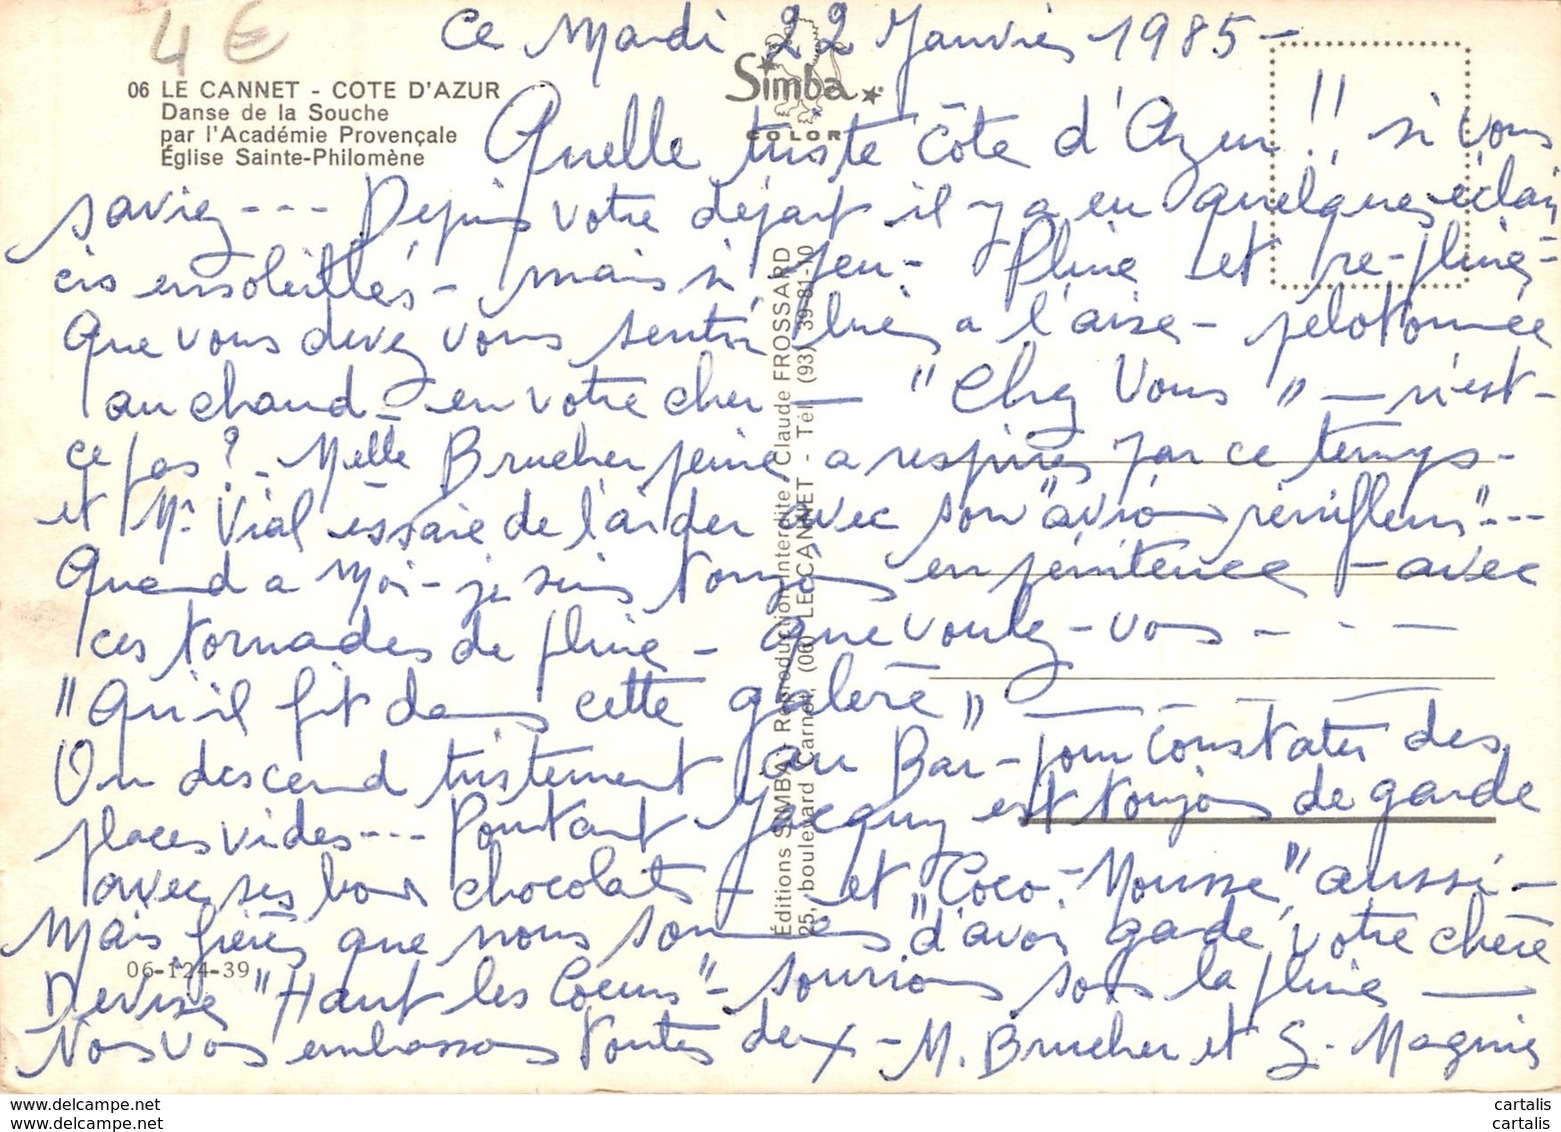 4€
Ce Mardi 22 Janvier 1985 -
06 LE CANNET - COTE D'AZUR
Danse de la Souche
par l'Académie Provençale
Église Sainte-Philomène
Simba
COLOR
Quelle triste côte d'Azur !! si vous
saviez --- Depuis votre départ il y a eu quelques éclair
cis ensoleillés - mais si peu - Pluie et re-pluie -
Que vous devez vous sentir bien a l'aise - pelotonnée
au chaud - en votre cher — "Chez Vous" — n'est-
ce pas? - Melle Brucher peine a respirer par ce temps -
et Mr Vial essaie de l'aider avec son "avion renifleur" ---
Quand a moi - je suis toujours en pénitence - avec
ces tornades de pluie - que voulez-vous - - - -
"Qu'il fit dans cette galère" — - - - -
On descend tristement au Bar - pour constater des
places vides --- Pourtant Jacquy est toujours de garde
avec ses bons chocolats - et "Coco-Mousse" aussi -
Mais fières que nous sommes d'avoir gardé votre chère
Devise "Haut les Coeurs" - sourions sous la pluie —
Nous vous embrassons toutes deux - M. Brucher et G. Magnier
06-124-39
Éditions SIMBA, Reproduction Interdite, Claude FROSSARD
25, boulevard Carnot, (06) LE CANNET - Tél. (93) 39-81-10
www.delcampe.net
www.delcampe.net
cartalis
cartalis